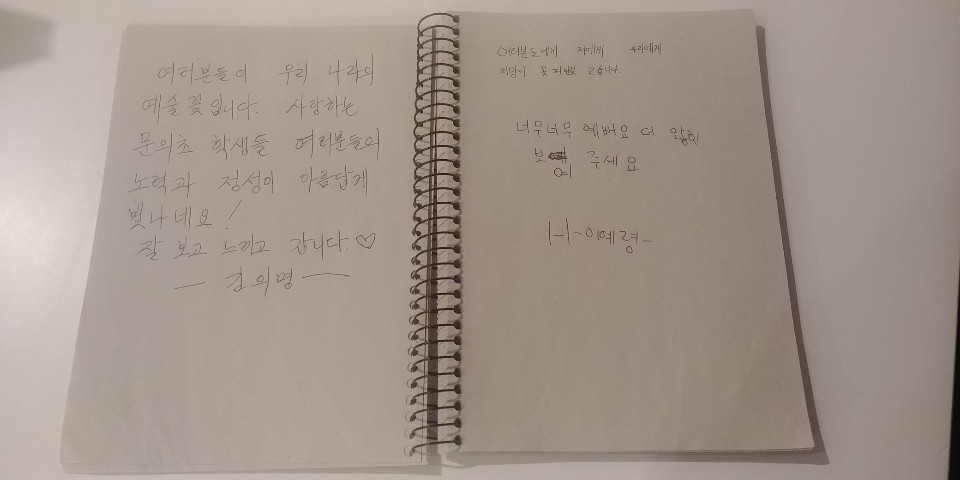 여러분들이 우리 나라의
예술꽃입니다. 사랑하는
문의초 학생들 여러분들의
노력과 정성이 아름답게
빛나네요!
잘 보고 느끼고 갑니다.♡
— 김의영 —
여러분들에게 저에게 우리에게
희망이 꽃 피었
너무너무 예뻐요 더 많이
보여 주세요
1-1-이예령-